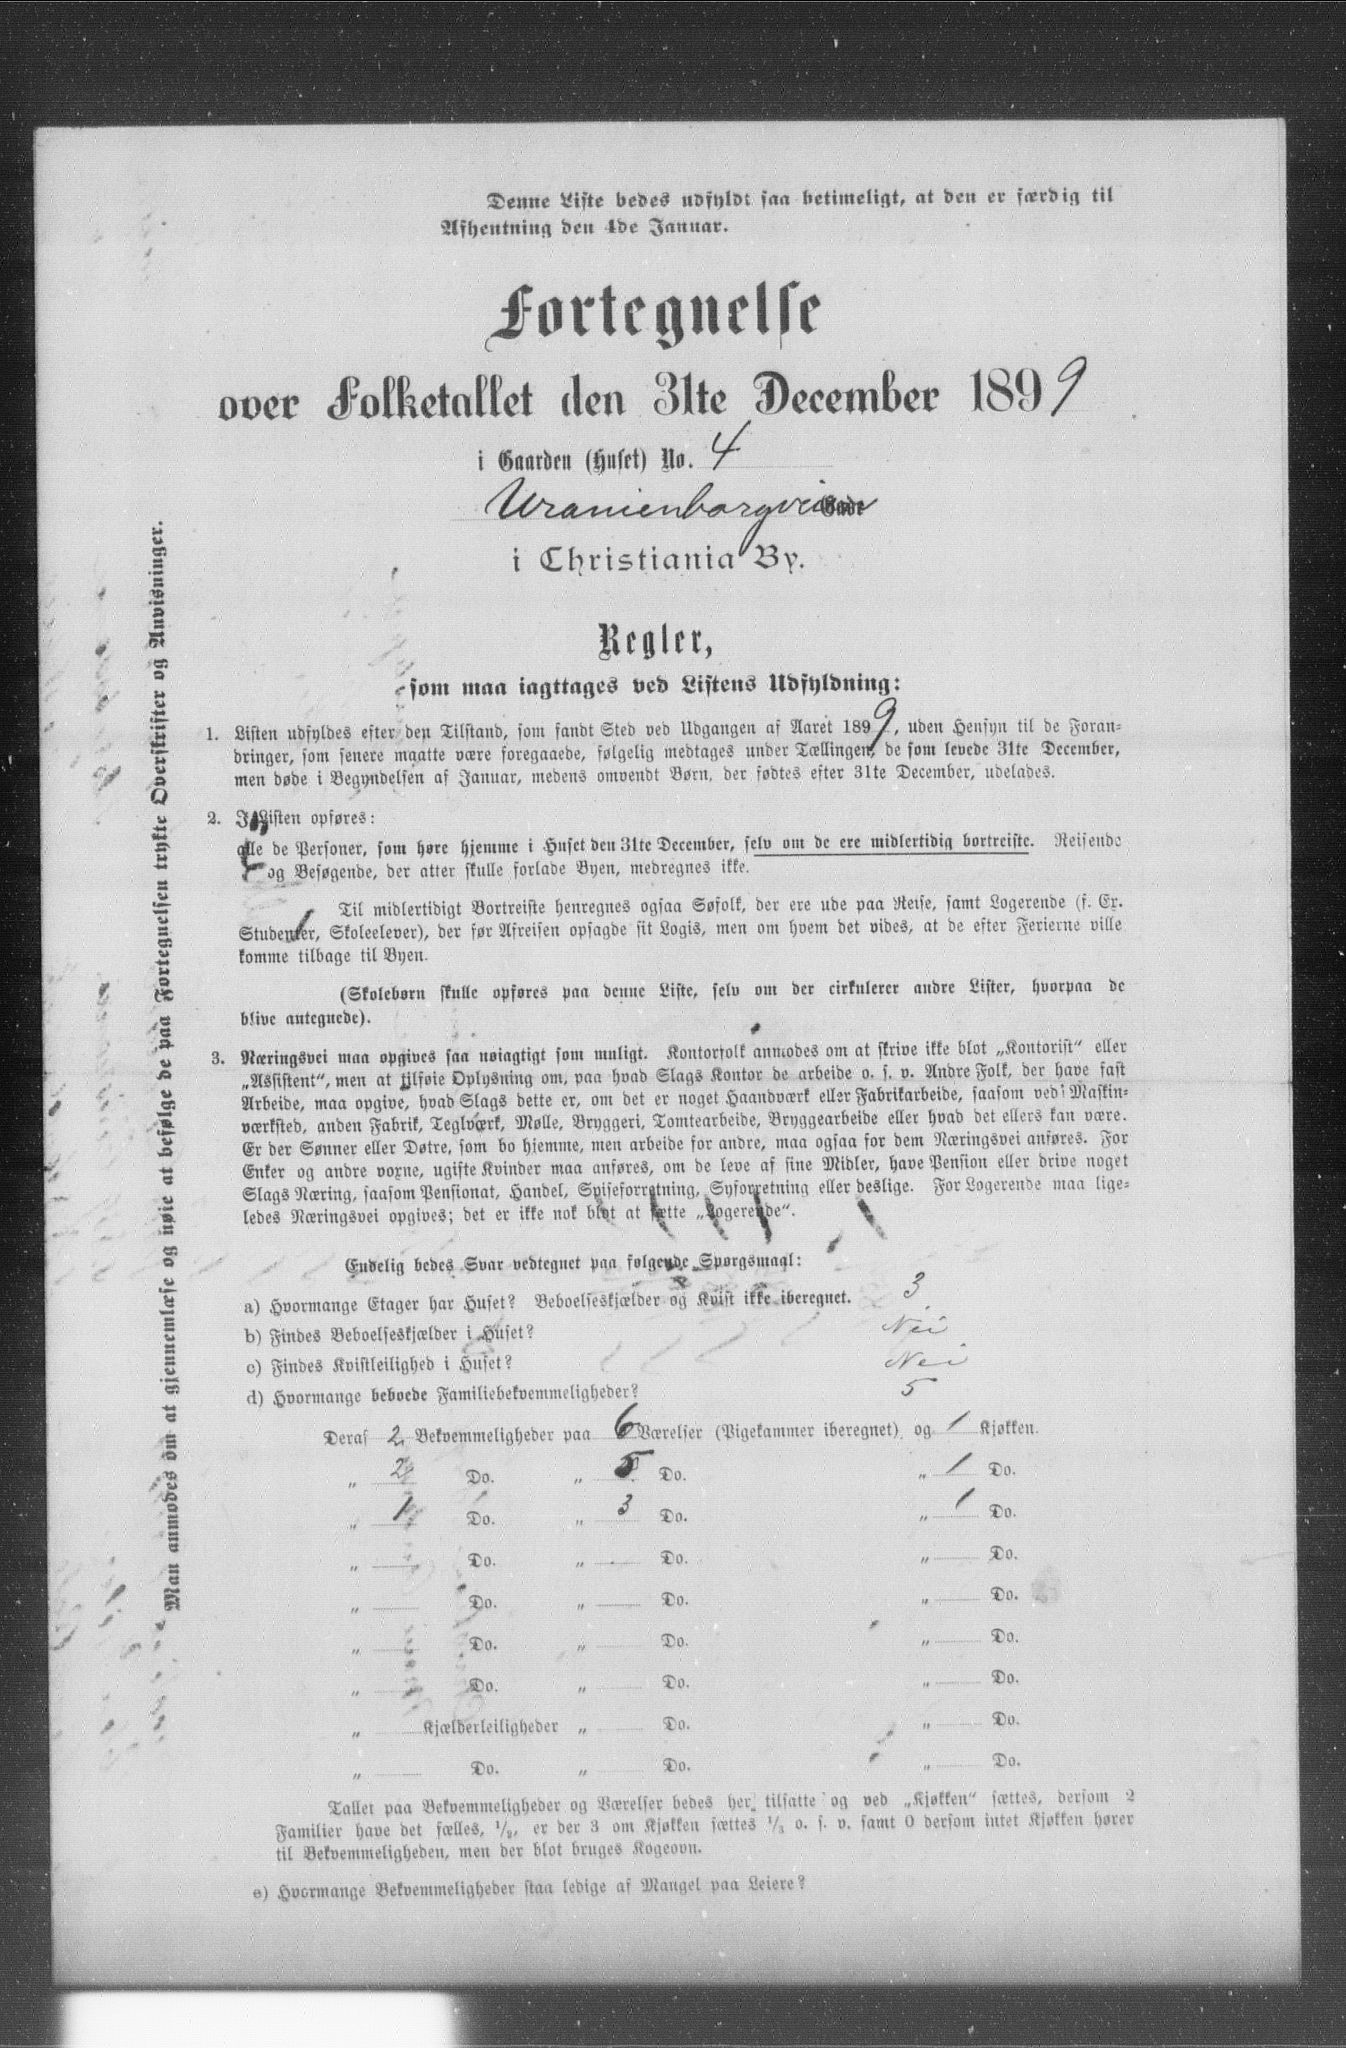 Denne Liste bedes udfyldt saa betimeligt, at den er færdig til
Afhentning den 4de Januar.
Fortegnelse
over Folketallet den 31te December 1899
i Gaarden (Huset) No. 4
Uranienborgveien Gade
i Christiania By.
Regler,
som maa iagttages ved Listens Udfyldning:
1. Listen udfyldes efter den Tilstand, som fandt Sted ved Udgangen af Aaret 1899, uden Hensyn til de Foran-
dringer, som senere maatte være foregaaede, følgelig medtages under Tællingen, de som levede 31te December,
men døde i Begyndelsen af Januar, medens omvendt Børn, der fødtes efter 31te December, udelades.
2. I Listen opføres:
alle de Personer, som høre hjemme i Huset den 31te December, selv om de ere midlertidig bortreiste. Reisende
og Besøgende, der atter skulle forlade Byen, medregnes ikke.
Til midlertidigt Bortreiste henregnes ogsaa Søfolk, der ere ude paa Reise, samt Logerende (f. Ex.
Studenter, Skoleelever), der før Afreisen opsagde sit Logis, men om hvem det vides, at de efter Ferierne ville
komme tilbage til Byen.
(Skolebørn skulle opføres paa denne Liste, selv om der cirkulerer andre Lister, hvorpaa de
blive antegnede).
3. Næringsvei maa opgives saa nøiagtigt som muligt. Kontorfolk anmodes om at skrive ikke blot „Kontorist“ eller
„Assistent“, men at tilføie Oplysning om, paa hvad Slags Kontor de arbeide o. s. v. Andre Folk, der have fast
Arbeide, maa opgive, hvad Slags dette er, om det er noget Haandværk eller Fabrikarbeide, saasom ved Maskin-
værksted, anden Fabrik, Teglværk, Mølle, Bryggeri, Tomtearbeide, Bryggearbeide eller hvad det ellers kan være.
Er der Sønner eller Døtre, som bo hjemme, men arbeide for andre, maa ogsaa for dem Næringsvei anføres. For
Enker og andre voxne, ugifte Kvinder maa anføres, om de leve af sine Midler, have Pension eller drive noget
Slags Næring, saasom Pensionat, Handel, Spiseforretning, Syforretning eller deslige. For Logerende maa lige-
ledes Næringsvei opgives; det er ikke nok blot at sætte „Logerende“.
Endelig bedes Svar vedtegnet paa følgende Spørgsmaal:
a) Hvormange Etager har Huset? Beboelseskjælder og Kvist ikke iberegnet. 3
b) Findes Beboelseskjælder i Huset? Nei
c) Findes Kvistleilighed i Huset? Nei
d) Hvormange beboede Familiebekvemmeligheder? 5
Deraf 2 Bekvemmeligheder paa 6 Værelser (Pigekammer iberegnet) og 1 Kjøkken.
„ 2 Do. „ 5 Do. „ 1 Do.
„ 1 Do. „ 3 Do. „ 1 Do.
„ Do. „ Do. „ Do.
„ Do. „ Do. „ Do.
„ Do. „ Do. „ Do.
„ Do. „ Do. „ Do.
„ Kjælderleiligheder „ Do. „ Do.
„ Do. „ Do. „ Do.
Tallet paa Bekvemmeligheder og Værelser bedes her tilsatte og ved „Kjøkken“ sættes, dersom 2
Familier have det fælles, 1/2, er der 3 om Kjøkken sættes 1/3 o. s. v. samt 0 dersom intet Kjøkken hører
til Bekvemmeligheden, men der blot bruges Kogeovn.
e) Hvormange Bekvemmeligheder staa ledige af Mangel paa Leiere?
Man anmodes om at gjennemlæse og nøie at befølge de paa Fortegnelsen trykte Overskrifter og Anvisninger.